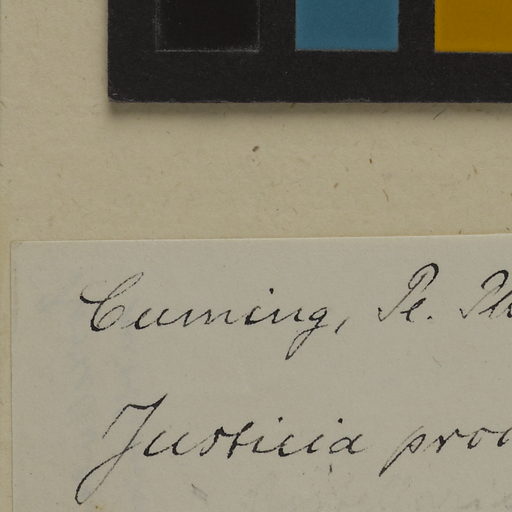 Cuming, Pl. Ph
Justicia proc